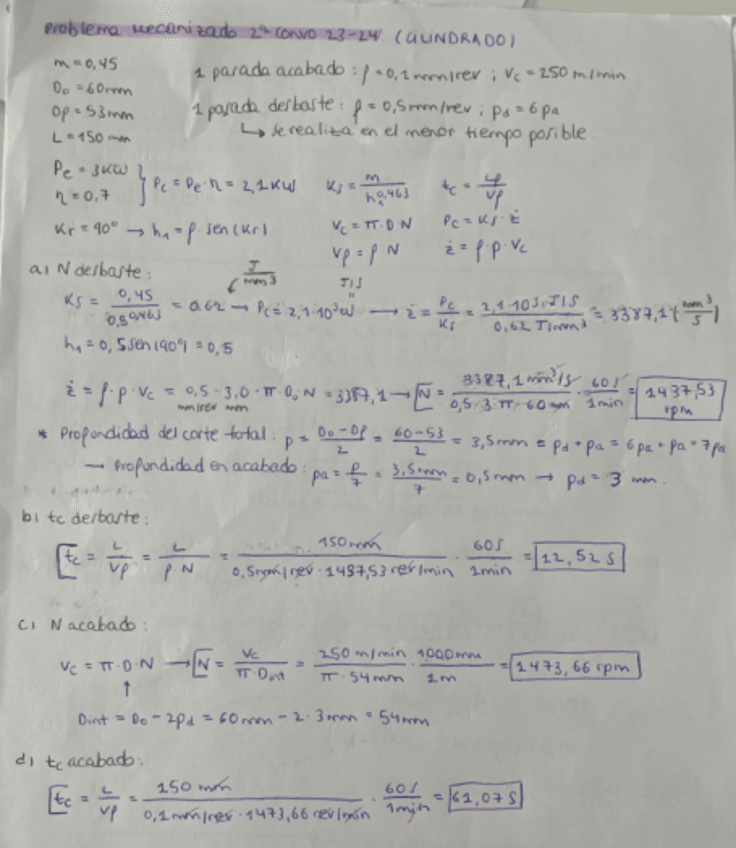 Problema mecanizado 2ª convo 23-24 (CILINDRADO)
m = 0,45
D₀ = 60mm
Dp = 53mm
L = 150 mm
1 pasada acabado : f = 0,1 mm/rev ; Vc = 250 m/min
1 pasada desbaste : f = 0,5mm/rev ; pd = 6 pa
↳ se realiza en el menor tiempo posible
Pe = 3KW
η = 0,7
} Pc = Pe·η = 2,1KW
Kr = 90° → h₁ = f · sen(Kr)
Ks = m / h₁^0,463
Vc = π·D·N
Vf = f·N
tc = Lf / Vf
Pc = Ks·ż
ż = f·p·Vc
a) N desbaste :
Ks = 0,45 / 0,5^0,463 = 0,62 J/mm³ → Pc = 2,1·10³W = J/s → ż = Pc / Ks = 2,1·10³ J/s / 0,62 J/mm³ = 3387,1 (mm³/s)
h₁ = 0,5 sen(90°) = 0,5
ż = f·p·Vc = 0,5 · 3,0 · π·D₀·N = 3387,1 → N = 3387,1 mm³/s / 0,5·3·π·60mm · 60s / 1min = 1437,53 rpm
mm/rev mm
* Profundidad del corte total : p = D₀ - Dp / 2 = 60-53 / 2 = 3,5mm = pd + pa = 6pa + pa = 7pa
→ Profundidad en acabado : pa = p / 7 = 3,5mm / 7 = 0,5mm → pd = 3 mm.
b) tc desbaste :
tc = L / Vf = L / f·N = 150mm / 0,5mm/rev · 1437,53 rev/min · 60s / 1min = 12,52 s
c) N acabado :
Vc = π·D·N → N = Vc / π·Dint = 250 m/min / π·54mm · 1000mm / 1m = 1473,66 rpm
↑
Dint = D₀ - 2pd = 60mm - 2·3mm = 54mm
d) tc acabado :
tc = L / Vf = 150 mm / 0,1 mm/rev · 1473,66 rev/min · 60s / 1min = 61,07 s